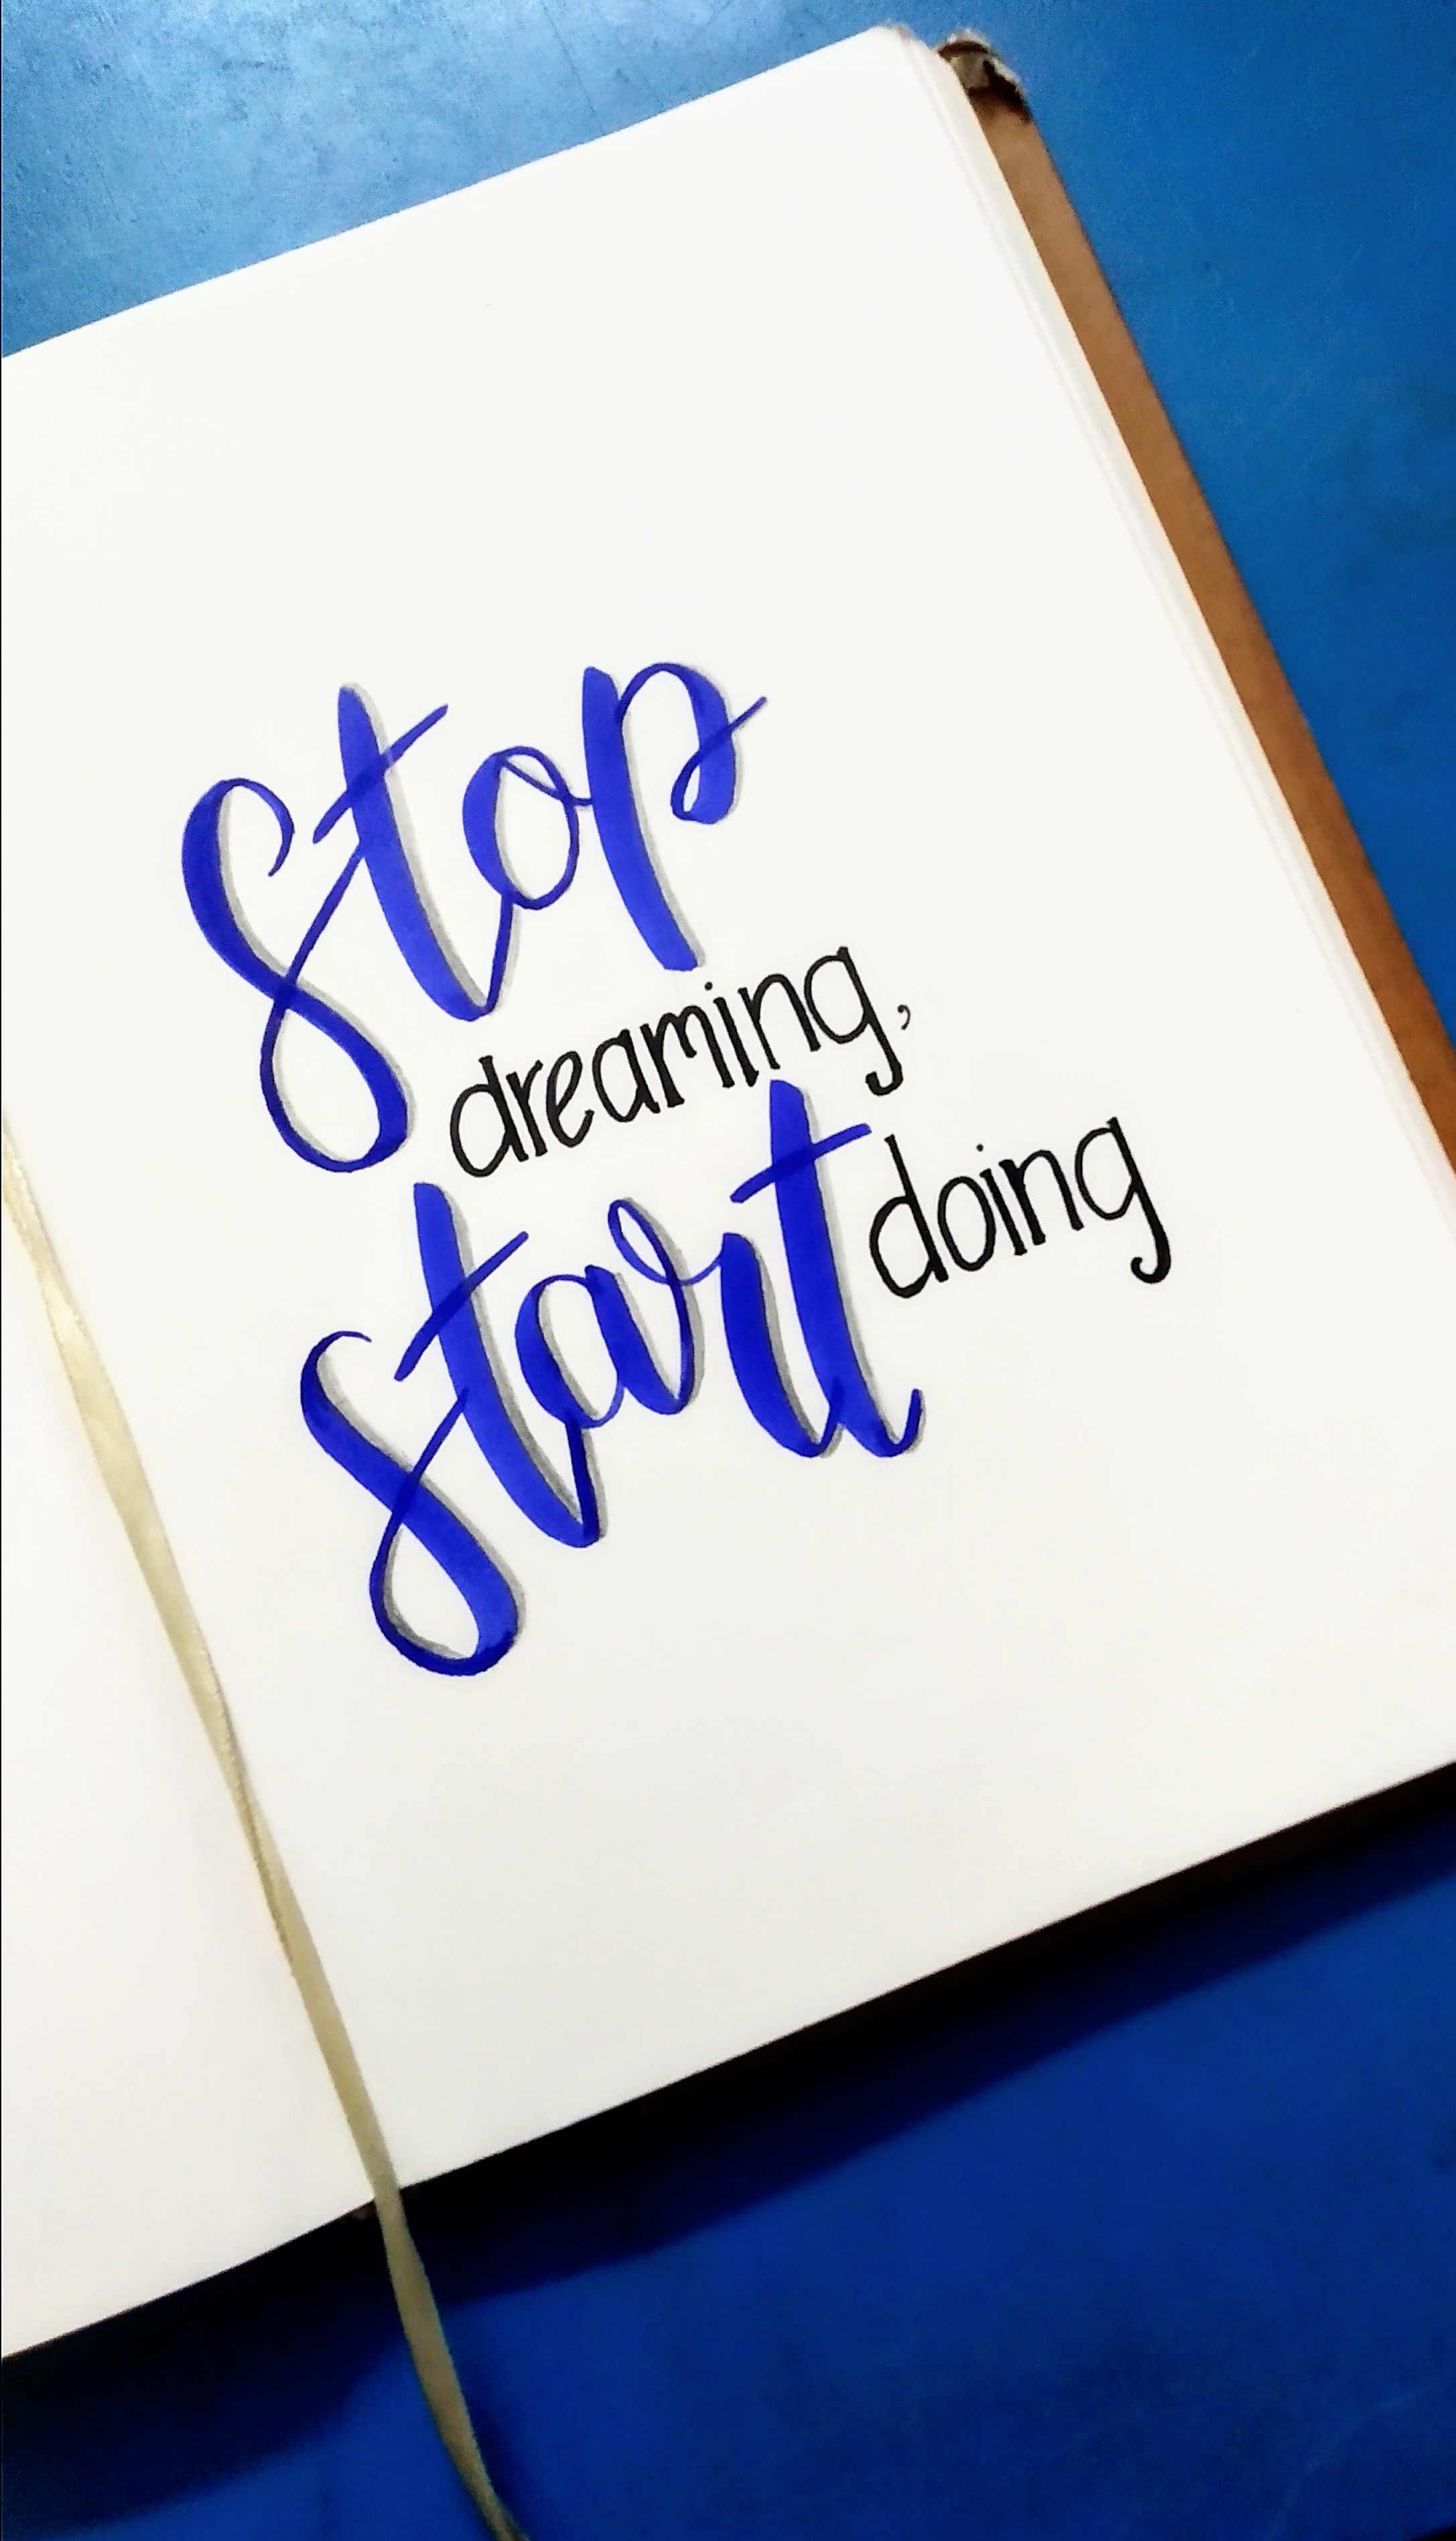 Stop
dreaming,
start doing